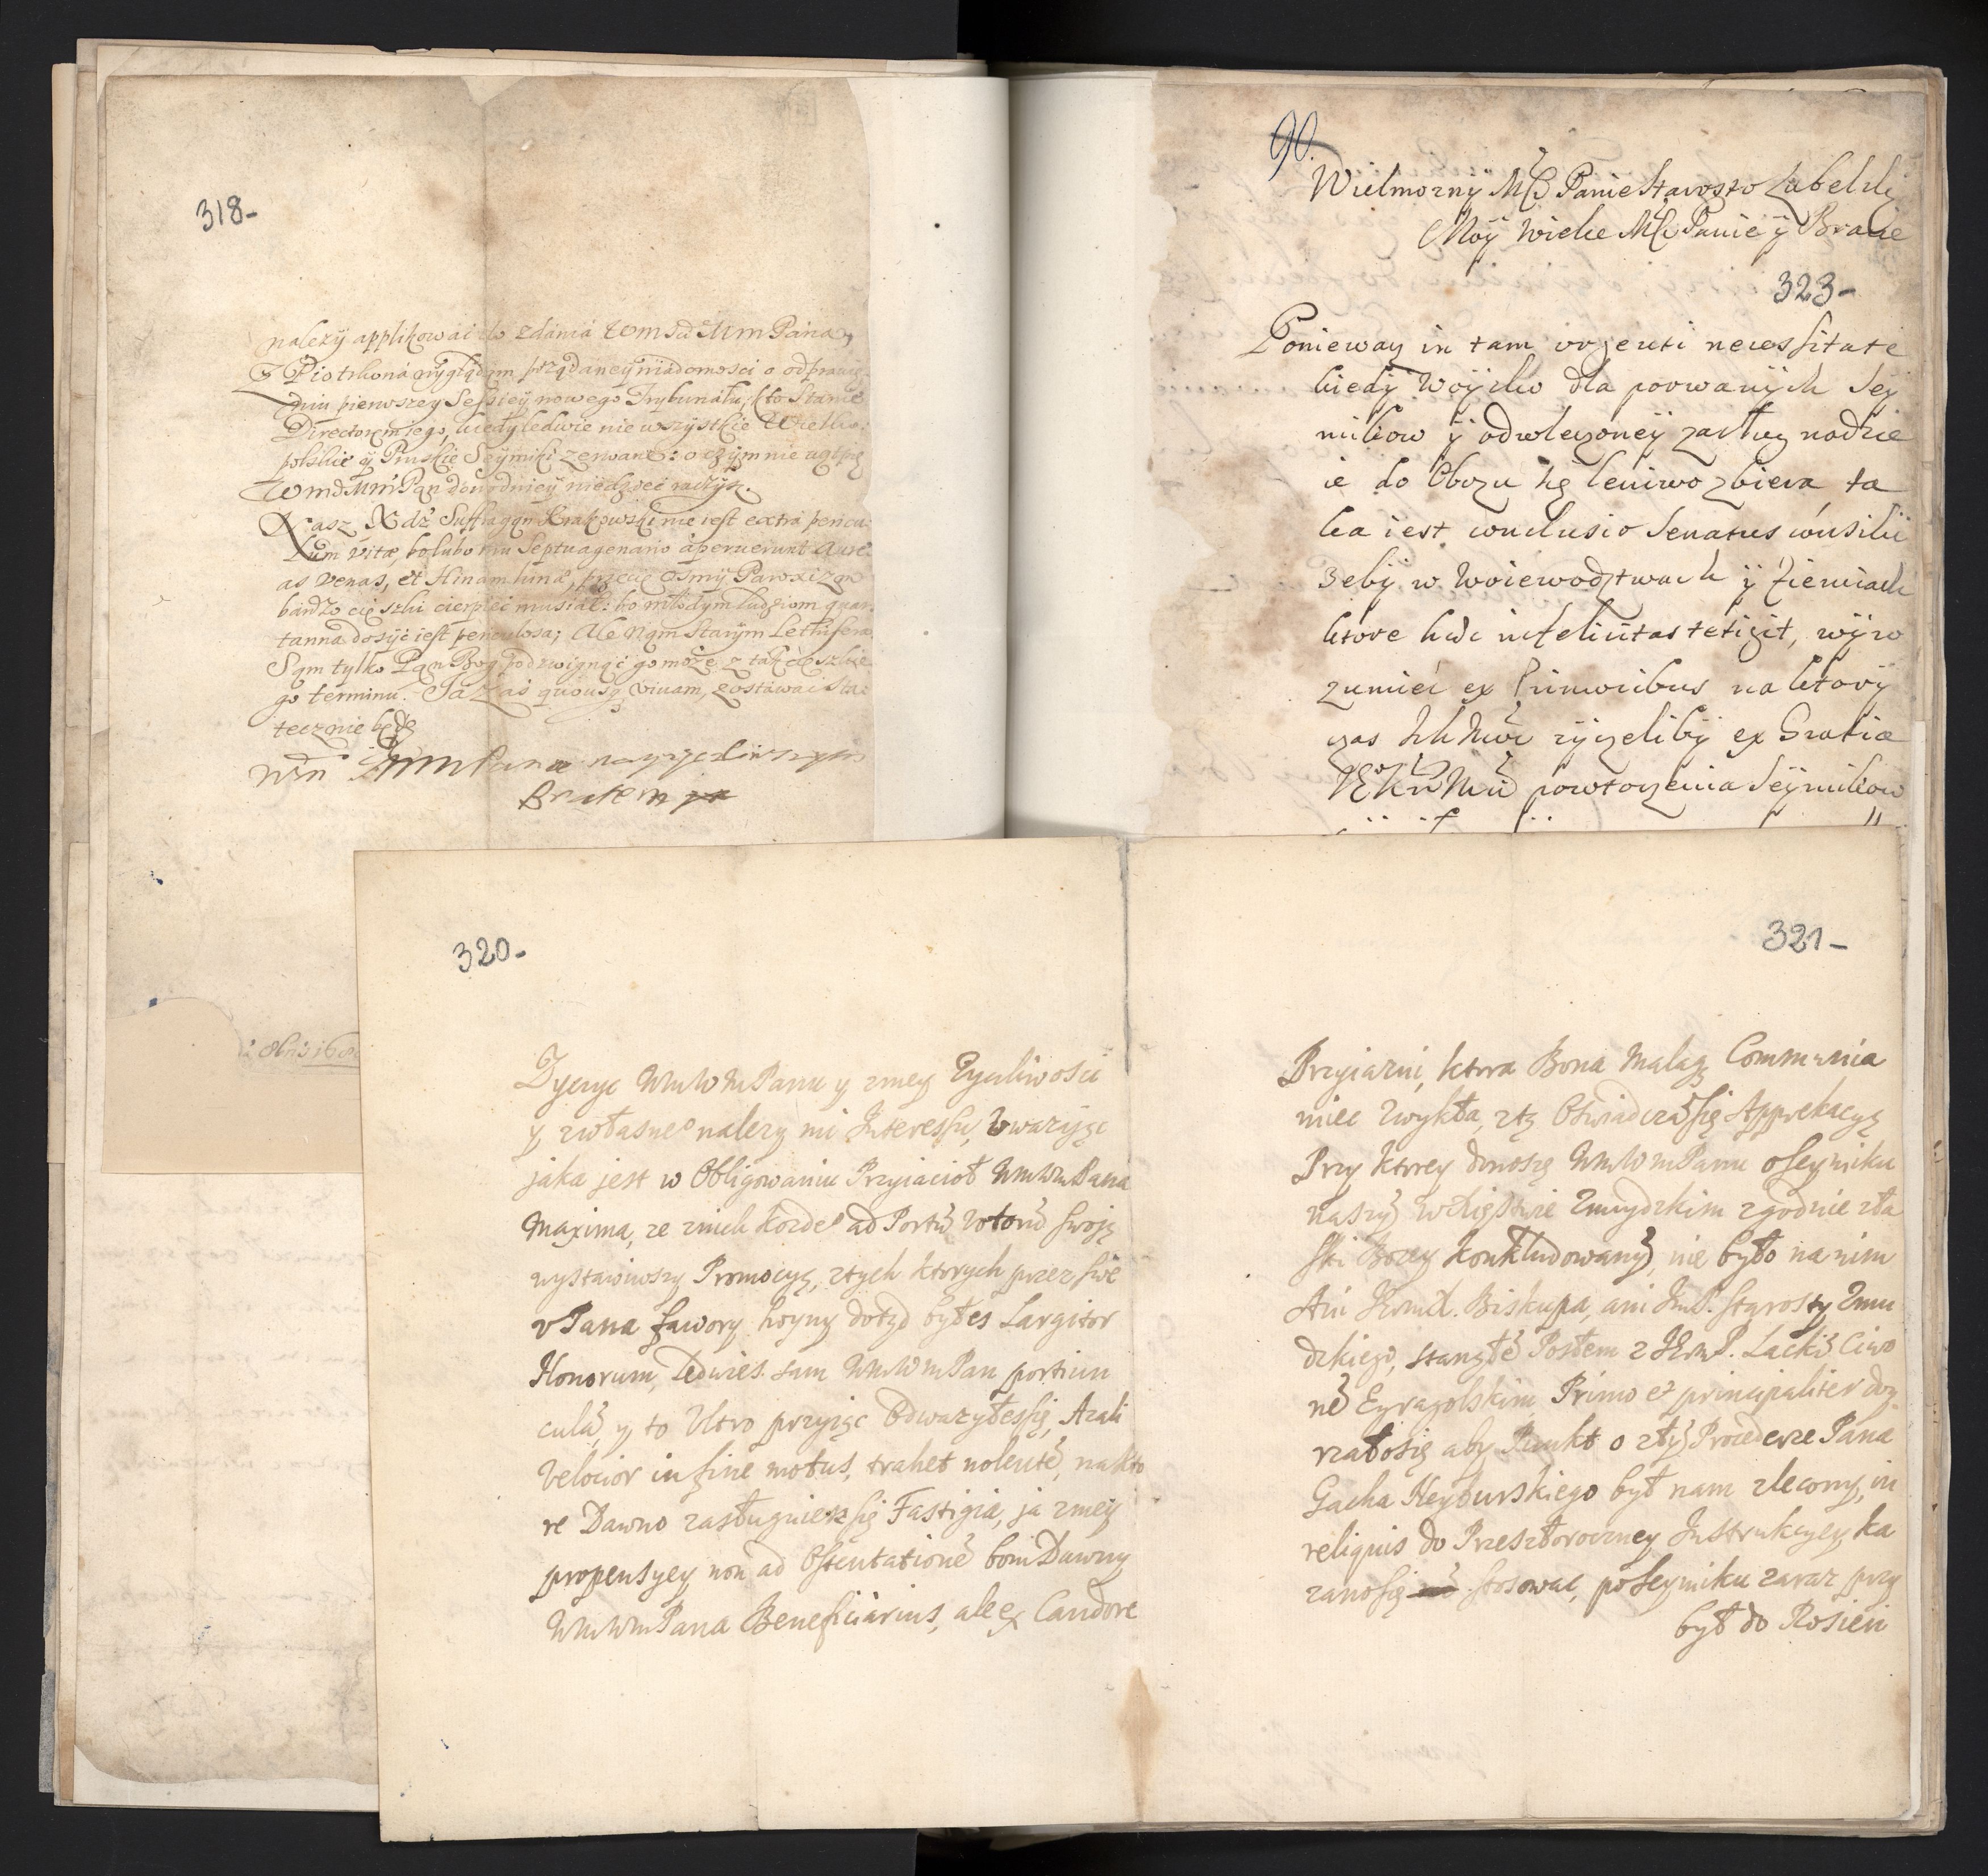 318-
należy applikować do zdánia WmMm Páná,
Z Piotrkoná wyglądam prządaney wiadomosci o odprawie
dniu pierwszey Sessiey nowego Trybunału; kto stanie
Directorem iego, kiedy ledwie nie wszystkie Wielko-
polskie y Pruskie Seymiki zerwano: o czym nie wątpię
WmMm Pan dowodniey wiedzieć raczysz.
Nasz Xdz Suffragan Krakowski nie iest extra pericu-
lum vitæ, bo lubo mu Septuagenario aperuerunt Aure-
as venas, et Hinam hinæ, przecię osmy Paroxizm
bardzo cięszki cierpieć musiał: bo młodym ludziom quar-
tanna dosyć iest periculosa; Ale Nam Starym Lethifera,
Sąm tylko Pąn Bog podzwignąć go może z tak cięszkie
go terminu. Ja zaś quousq vivam, zostáwáć stá-
tecznie będę
Mm Páná nayżyczliwszym
Bratem
8bris 168
90.
Wielmozny Mći Panie Starosto Lubelski
Moy Wielce Mći Panie y Bracie
323-
Poniewaz in tam urgenti necessitate
kiedy Woysko dla porwanych Sey
mikow y odwleczoney zasług nadzie
ie do Obozu się leniwo zbiera, ta
ka iest conclusio Senatus consilii
zeby w Woiewodztwach y Ziemiach
ktore haec infelicitas tetigit, wyro
zumieć ex Primoribus na ktory
czas Ich Mći zyczeliby ex Gratia
JKMći powtorzenia Seymikow
320-
Zyczyc WmWMPanu y zmey Zyczliwosci
y zwłasne° nalezy mi Interessu, Uwazyjąc
jaka jest w Obligowaniu Przyiacioł WmWmPana
Maxima, ze znich kozde° ad Portu Votoru swoją
wystawiwszy Promocyą, ztych ktorych przez swe
v Pana fawory hoyny dotąd byłes Largitor
Honorum, ledwies sam WmWmPan portiun
cula, y to Ultro przyiąc Odwazyłessię, Azali
Velocior in fine motus, trahet nolente, na kto
re Dawno zasługuiesz się Fastigia, ja zmey
propensyey non ad Ostentatione bom Dawny
WmWmPana Beneficiarius, ale ex Candore
321-
Przyiazni, ktora Bona Malaq Communia
miec zwykła, ztą Oswiadczaćsię Apprekacyą
Przy ktorey donoszę WmWmPanu o Seymiku
naszy w Xięstwie Zmuydzkim zgodnie zła
ski Bozey konkludowany, nie było na nim
Ani Jeomci X. Biskupa, ani JmP. Starosty Zmu
dzkiego, stanąłe Posłem z JEmP. Lacki Ciwo
ne Eyragolskim, Primo et principaliter doy-
rzałosię aby Punkt o zły Procederze Pana
Gacha Heydurskiego był nam zlecony, in
reliquis do Przeszłoroczney Instrukcyey ka
zanosię stosowac, po Seymiku zaraz przy
był do Rosien